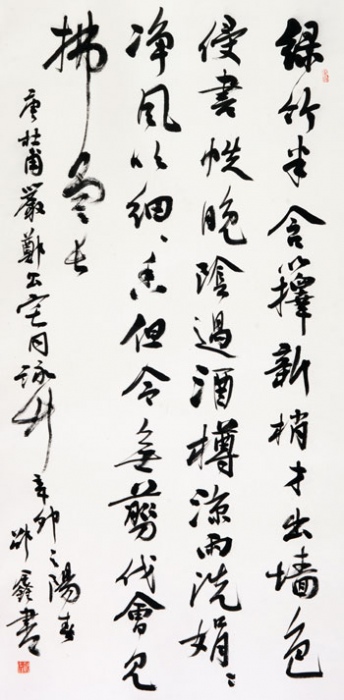 緑竹半含籜新梢才出墻色
侵書帙晚陰過酒樽凉雨洗娟〻
净風吹細〻香但令無剪伐會見
拂雲長
唐杜甫嚴鄭公宅同詠竹 辛卯之陽春
鑫書